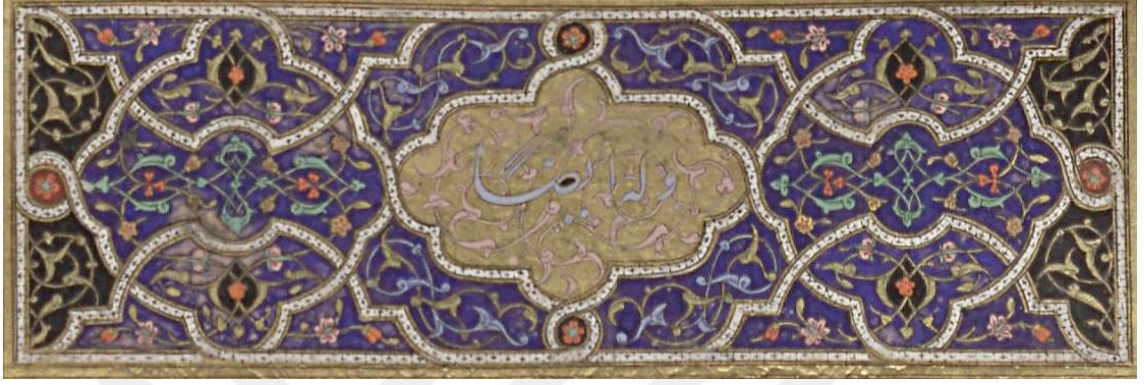 وله ایضاً